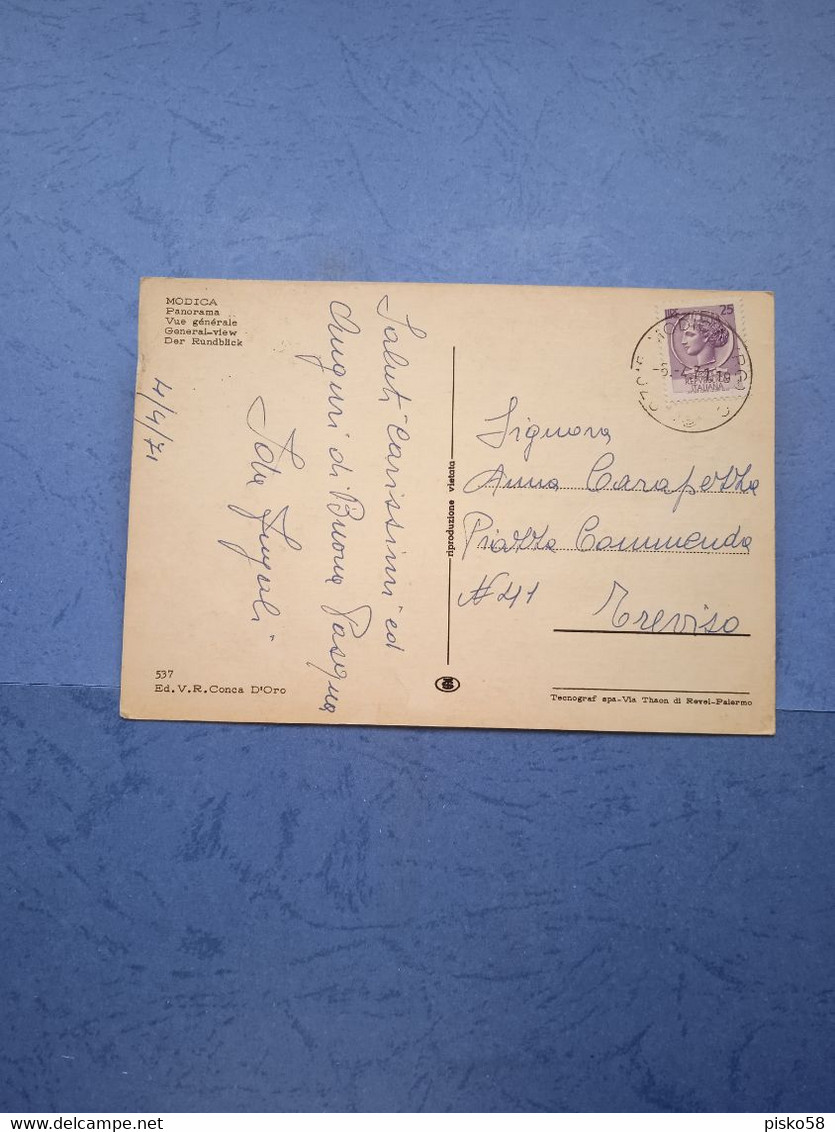 MODICA
Panorama
Vue générale
General-view
Der Rundblick
4/4/71
Saluti Carissimi ed
Auguri di Buona Pasqua
Ida
537
Ed.V.R.Conca D'Oro
riproduzione vietata
LIRE 25
ITALIANA
-5.-4.71.19
Signora
Anna Carapezza
Piazza Commenda
N 41
Treviso
Tecnograf spa-Via Thaon di Revel-Palermo
pisko58